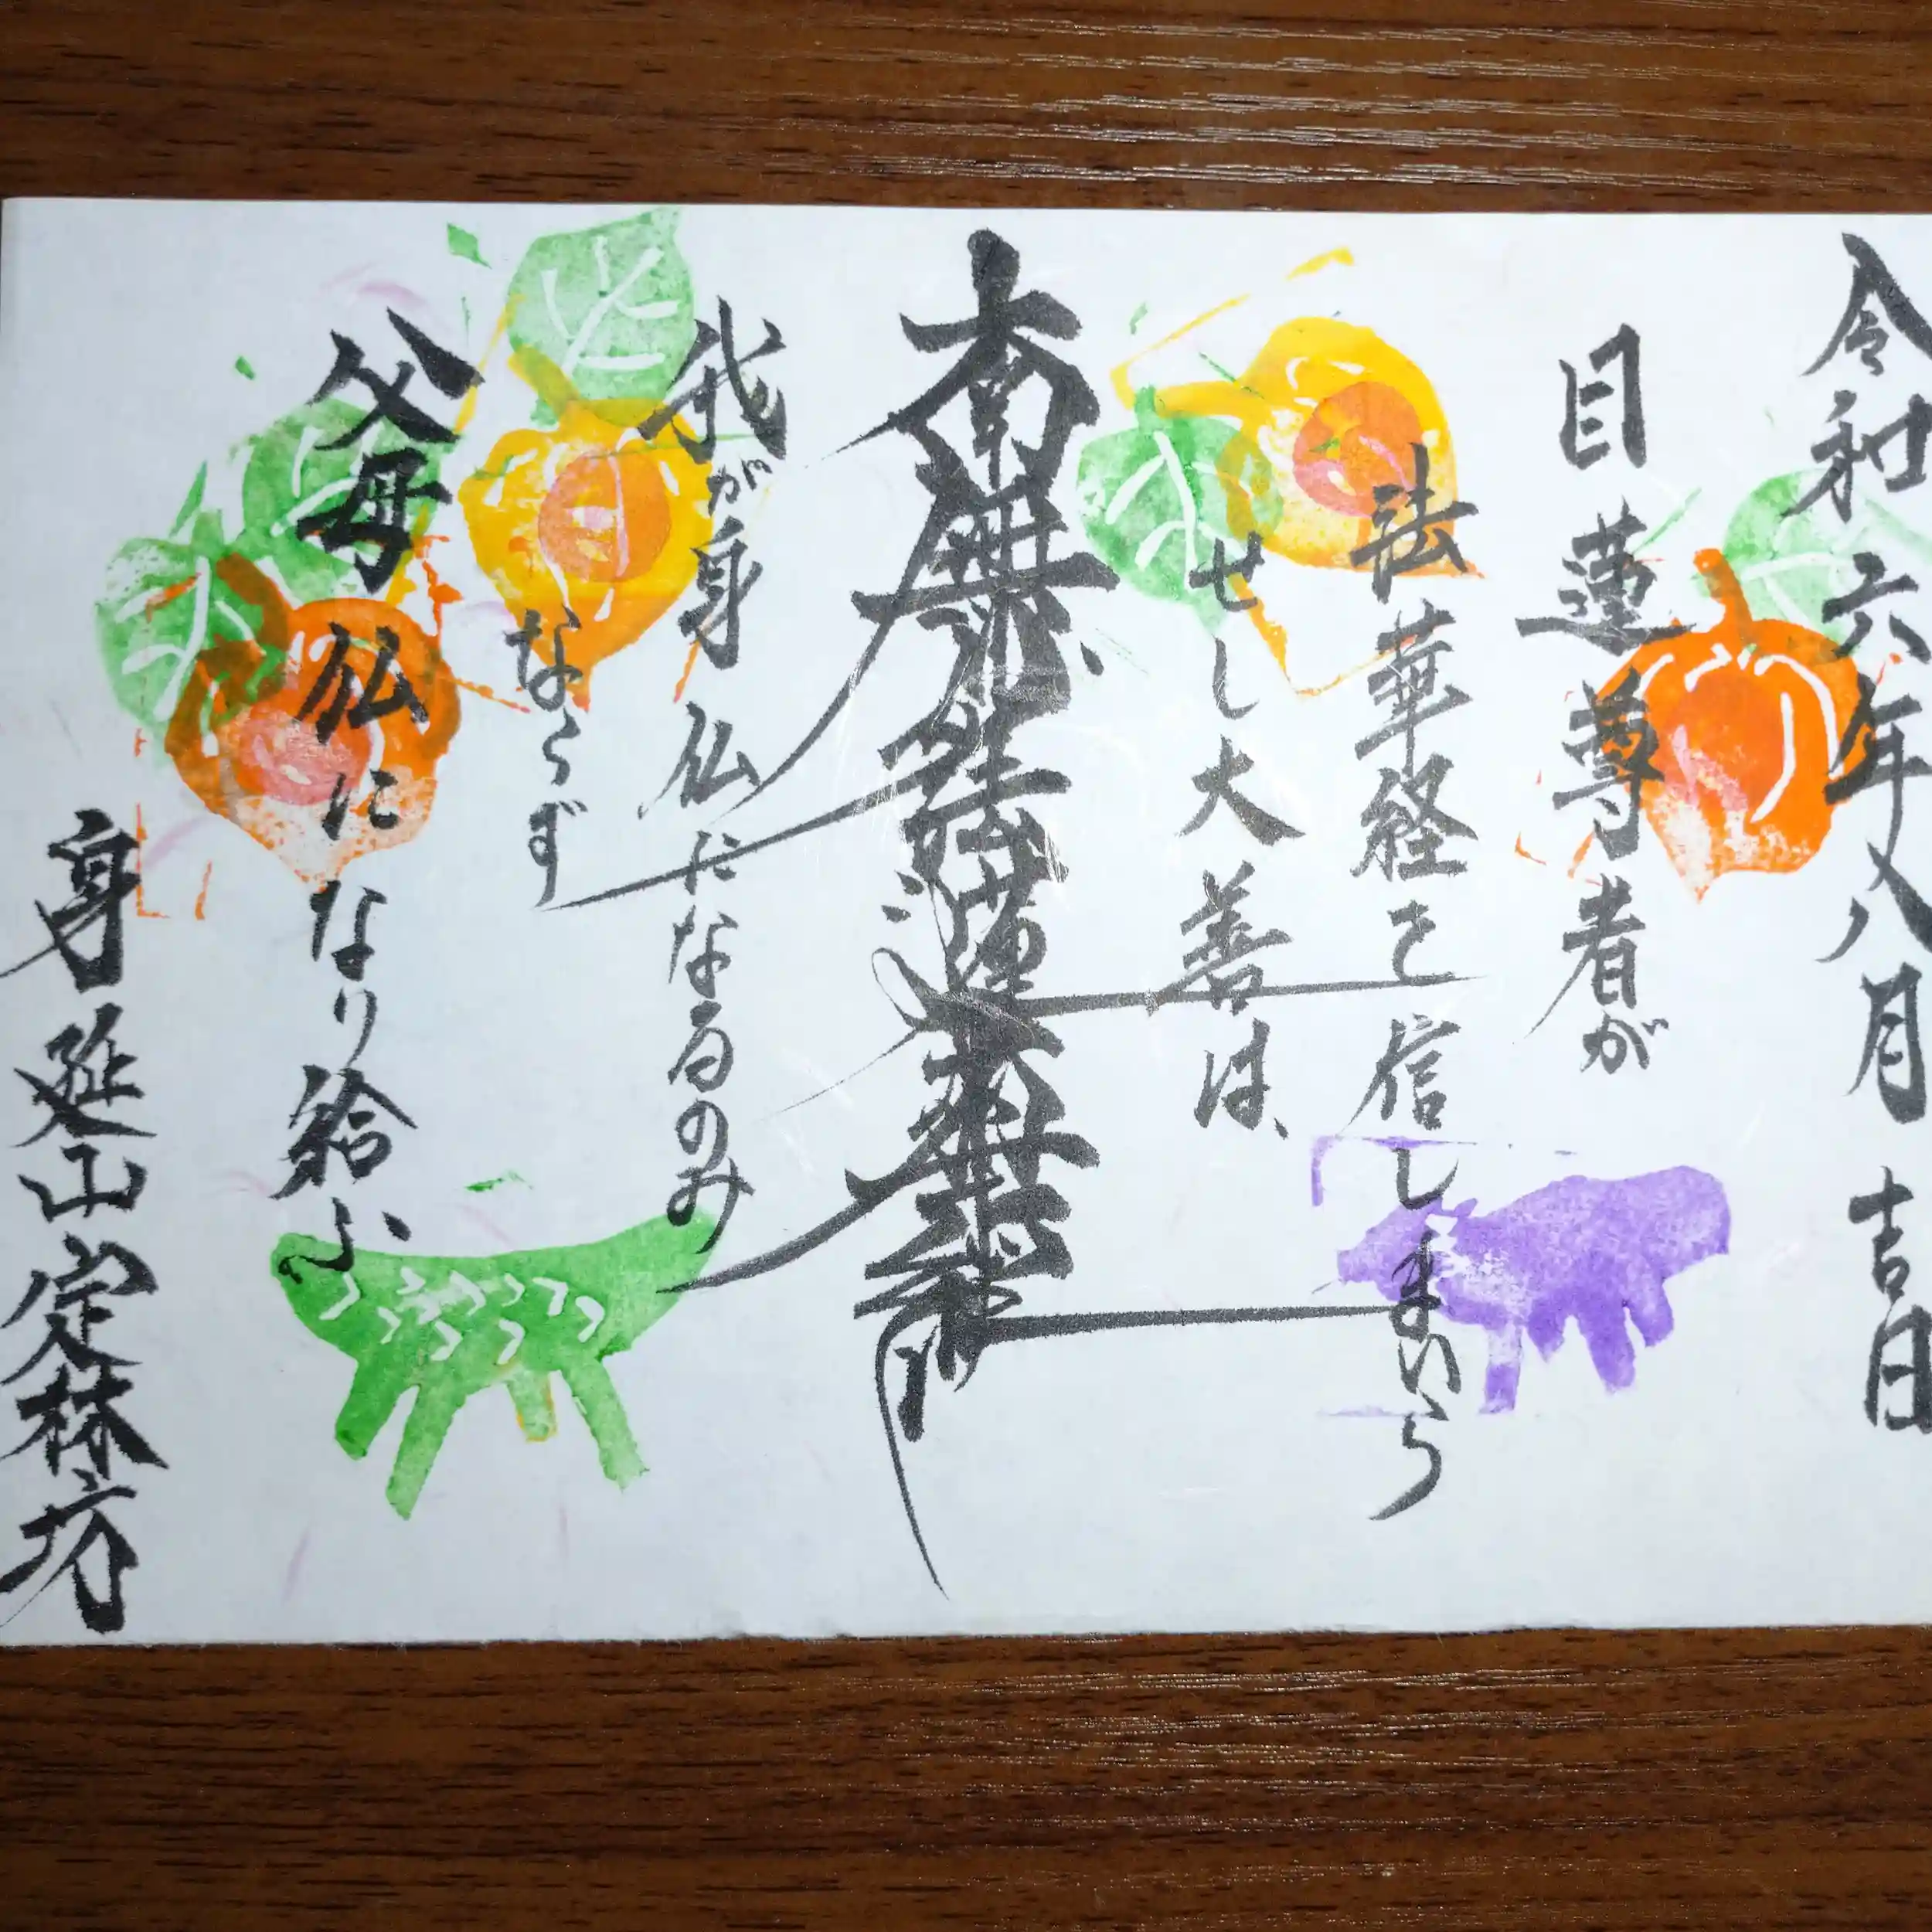 令和六年八月吉日
目蓮尊者が
法華経を信しまいら
せし大善は、
南無妙法蓮華経
我が身仏になるのみ
ならず
父母仏になり給ふ
身延山定林坊